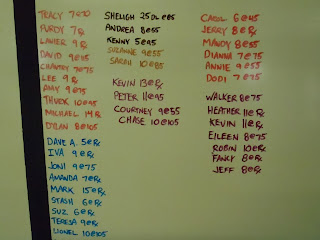 TRACY 7@70
PURDY 7@
LANIER 9@
DAVID 9@55
CHANTRY 7@75
LEE 9@
AMY 9@75
THURK 10@95
MICHAEL 14@
DYLAN 8@105
DAVE A. 5@Rx
IVA 9@Rx
JONI 9@75
AMANDA 7@Rx
MARK 15@Rx
STASH 6@Rx
SUZ 6@Rx
TERESA 9@Rx
LIONEL 10@105
SHELIGH 25DL@85
ANDREA 8@55
KENNY 5@95
SUZANNE 9@55
SARAH 10@85
KEVIN 13@Rx
PETER 11@95
COURTNEY 9@55
CHASE 10@105
CAROL 6@45
JERRY 8@Rx
MANDY 8@55
DIANNA 7@75
ANNIE 9@55
DODI 7@75
WALKER 8@75
HEATHER 11@Rx
KEVIN 11@Rx
EILEEN 8@75
ROBIN 10@Rx
FANCY 8@Rx
JEFF 8@Rx